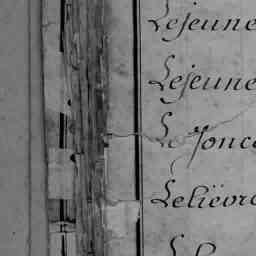 Lejeune
Lejeune
Le Jonc
Lelièvre